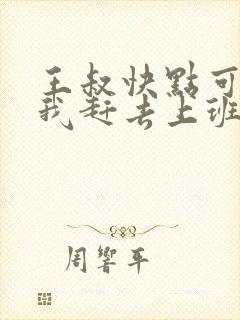 王叔快點可
我趕去上班
周響平